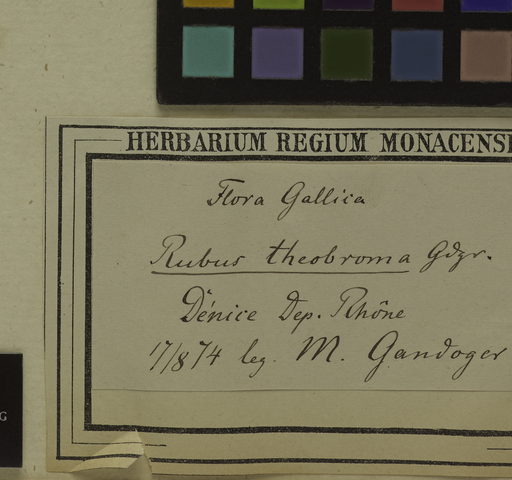 HERBARIUM REGIUM MONACENSE
Flora Gallica
Rubus theobroma Gdgr.
Dénice Dep. Rhône
17/8 74 leg. M. Gandoger
G